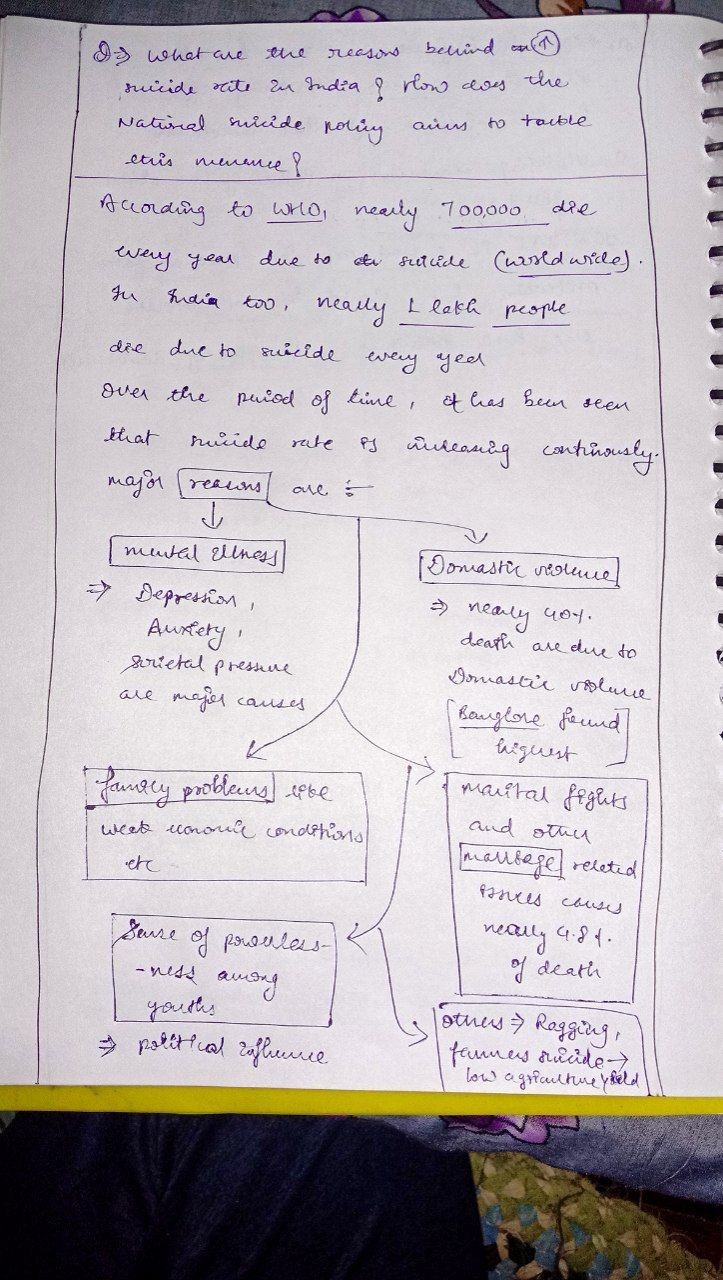 Q⇒ What are the reasons behind ↑
suicide rate in India? How does the
National suicide policy aims to tackle
this menance?
According to WHO, nearly 700,000 die
every year due to suicide (worldwide).
In India too, nearly 1 lakh people
die due to suicide every year
Over the period of time, it has been seen
that suicide rate is increasing continously.
major reasons are :-
mental illness
⇒ Depression,
Anxiety,
societal pressure
are major causes
Domastic violence
⇒ nearly 40%
death are due to
Domastic violence
[Banglore found
highest]
family problems like
weak economic conditions
etc
marital fights
and other
marriage related
issues causes
nearly 4.8%
of death
Sense of powerless-
-ness among
youths
⇒ political influence
others ⇒ Ragging,
farmers suicide →
low agriculture yield